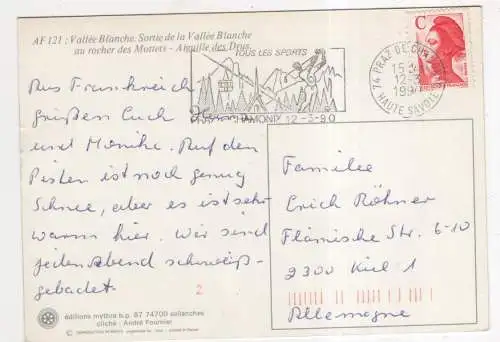 AF 121 : Vallée Blanche. Sortie de la Vallée Blanche
au rocher des Mottets - Aiguille des Drus.
TOUS LES SPORTS
CHAMONIX 12-3-90
C
74 PRAZ DE CH
15
12-3
199
HAUTE SAVOIE
Aus Frankreich
grüßen Euch
und Monika. Auf den
Pisten ist noch genug
Schnee, aber es ist sehr
warm hier. Wir sind
jeden Abend schweiß-
gebadet.
2
Familie
Erich Röhner
Flämische Str. 6-10
2300 Kiel 1
Allemagne
éditions mythra b.p. 67 74700 sallanches
cliché : André Fournier